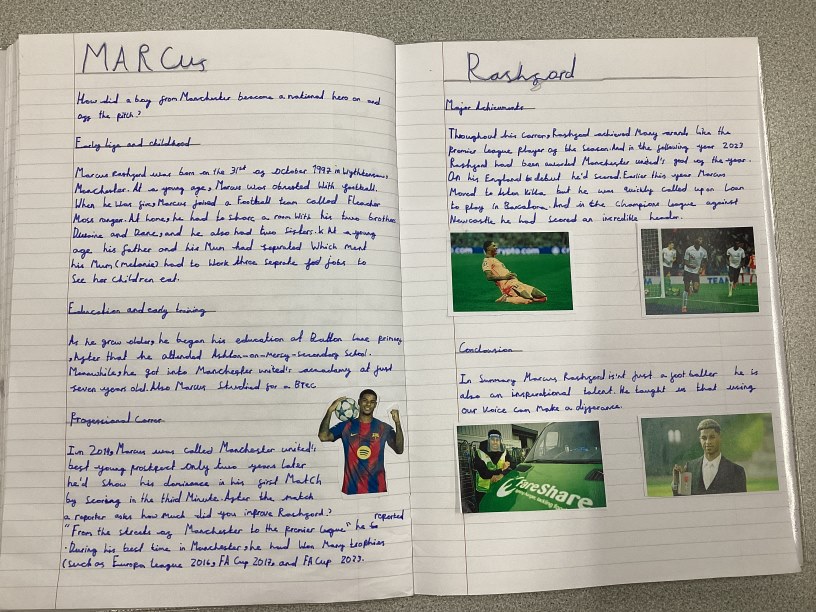 MARCUS
How did a boy from Manchester beacome a national hero on and
off the pitch?
Early life and childhood
Marcus Rashford was born on the 31st of October 1997 in Wythenshawe,
Manchester. At a young age, Marcus was obsessed with football.
When he was five, Marcus joined a Football team called Fleacher
Moss ranger. At home, he had to share a room with his two brothers
and Dane, and he also had two sisters. At a young
age his father and his Mum had seperated which ment
his Mum, (melanie) had to work three seprate jobs to
see her children eat.
Education and early training
As he grew older, he began his education at Button Lane primary
, After that he attended Ashton-on-Mercy-secondary School.
Meanwhile, he got into Manchester united's acnadamy at just
seven years old. Also Marcus Studied for a BTEC
Professional Carrer
In 2014, Marcus was called Manchester united's
best young prospect only two years later
he'd show his dominance in his first Match
by scoring in the third Minute. After the match
a reporter asks how much did you improve Rashford?
"From the streets of Manchester to the premier league" he reported
. During his best time in Manchester, he had won Many trophies
(such as Europa League 2016, FA Cup 2017, and FA Cup 2023.
Rashford
Major Achievments
Throughout his carrer, Rashford achieved Many awards like the
Premier league player of the season. And in the following year 2023
Rashford had been awarded Manchester united's goal of the year.
On his England to debut he'd scored. Earlier this year Marcus
Moved to Aston Killa but he was quickly called upon Loan
to play in Barcalona. And in the champions league against
Newcastle he had scored an incredible header.
crypto.com
TEAM
Conclusion
In Summary Marcus Rashford is'nt just a footballer he is
also an inspirational talent. He taught us that using
our voice can make a difference.
FareShare